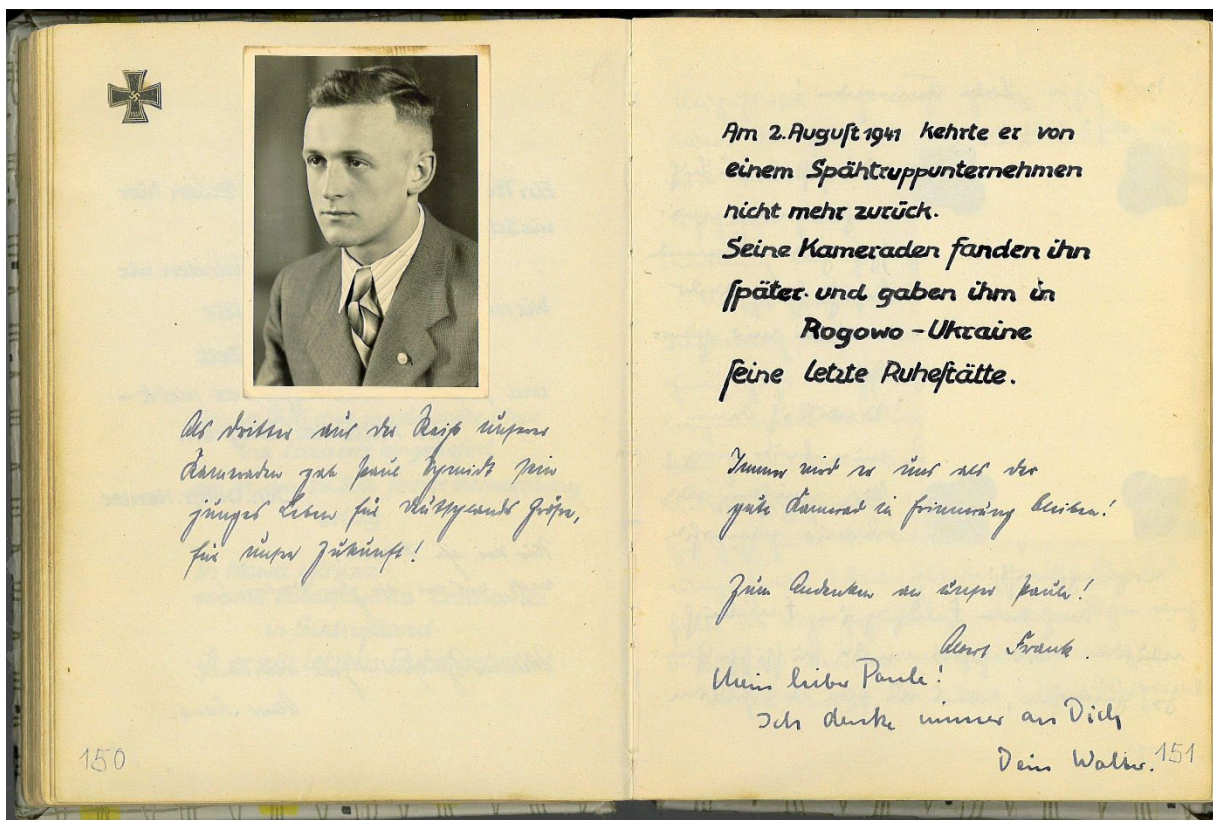 Als dritter aus der Reihe unserer
Kameraden gab Paul Schmidt sein
junges Leben für Deutschlands Größe,
für unsere Zukunft!
150
Am 2. August 1941 kehrte er von
einem Spähtruppunternehmen
nicht mehr zurück.
Seine Kameraden fanden ihn
später und gaben ihm in
Rogowo - Ukraine
seine letzte Ruhestätte.
Immer wird er uns als der
gute Kamerad in Erinnerung bleiben!
Zum Andenken an unser Paule!
Frank.
Mein lieber Paule!
Ich denke immer an Dich
Dein Walter.
151